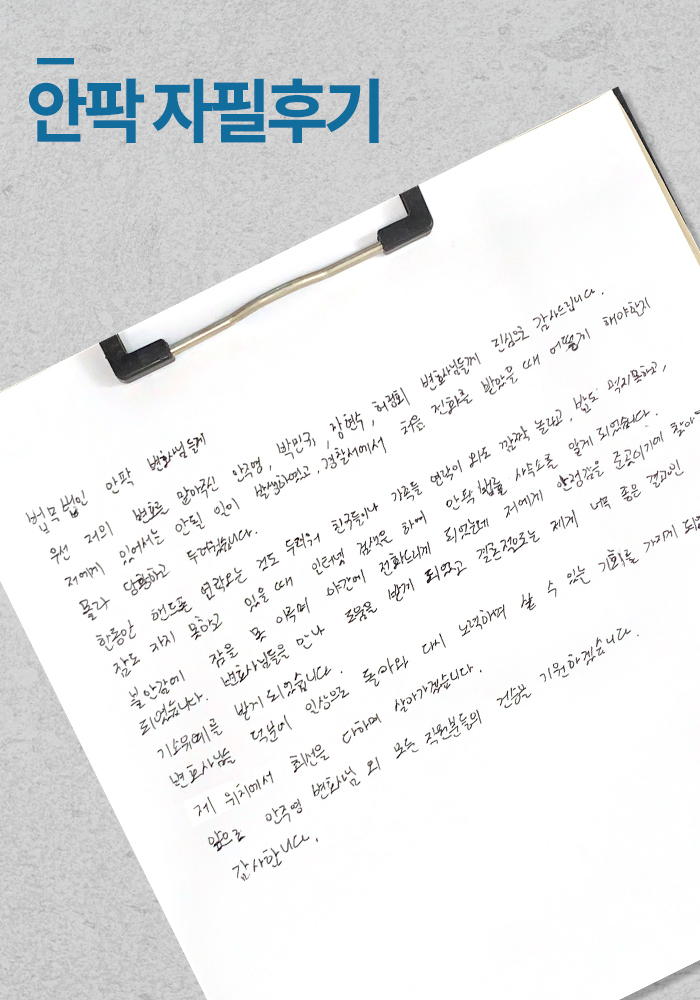 안팍 자필후기
법무법인 안팍 변호사님들께
우선 저의 변호를 맡아주신 안주영, 박민규, 장현수, 허정회 변호사님들께 진심으로 감사드립니다.
저에게 있어서는 안될 일이 발생하였고, 경찰서에서 처음 전화를 받았을 때 어떻게 해야할지
몰라 당황하고 두려웠습니다.
한동안 핸드폰 연락오는 것도 두려워 친구들이나 가족들 연락이 와도 깜짝 놀라고, 밥도 먹지못하고,
잠도 자지 못하고 있을때 인터넷 검색을 하여 안팍 법률 사무소를 알게 되었습니다.
불안감에 잠을 못 이루며 야간에 전화드리게 되었는데 저에게 안정감을 준곳이기에 찾아
되었습니다. 변호사님들을 만나 도움을 받게 되었고 결론적으로는 제게 너무 좋은 결과인
기소유예를 받게 되었습니다.
변호사님들 덕분에 일상으로 돌아와 다시 노력하며 살 수 있는 기회를 가지게 되었
제 위치에서 최선을 다하며 살아가겠습니다.
앞으로 안주영 변호사님 외 모든 직원분들의 건승을 기원하겠습니다.
감사합니다.